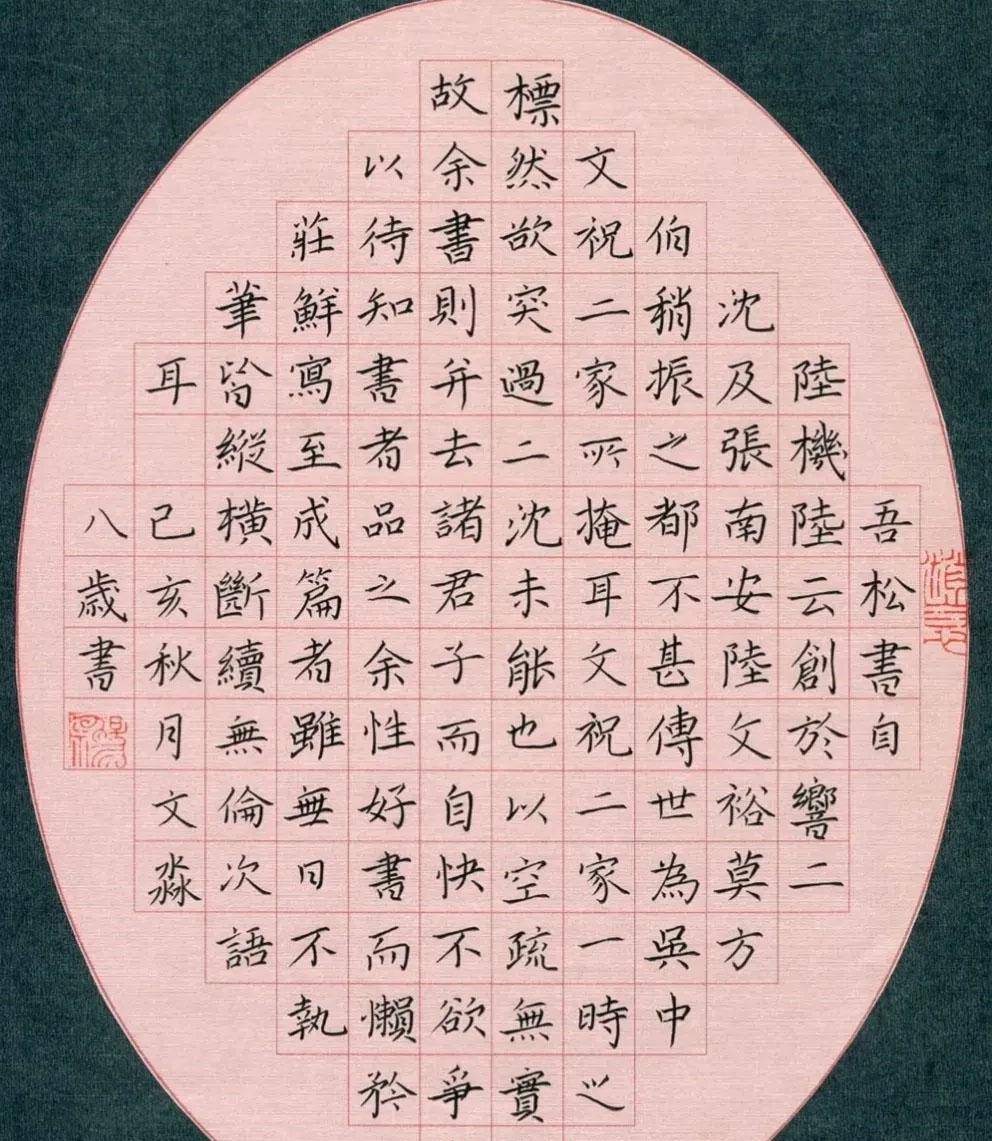 吾松書自
陸機陸云創於響二
沈及張南安陸文裕莫方
伯稍振之都不甚傳世為吳中
文祝二家所掩耳文祝二家一時之
標然欲突過二沈未能也以空疏無實
故余書則并去諸君子而自快不欲爭
以待知書者品之余性好書而懶矜
莊鮮寫至成篇者雖無日不執
筆皆縱橫斷續無倫次語
耳 己亥秋月文淼
八歲書